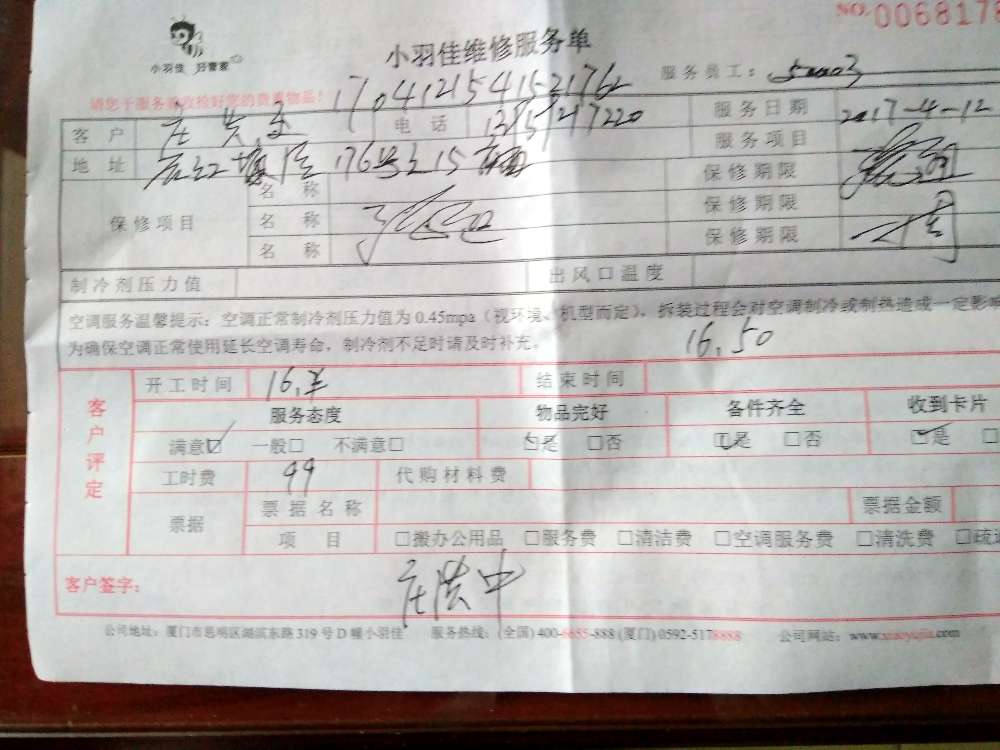 NO. 0068178
小羽佳 好管家
小羽佳维修服务单
服务员工：
请您于服务前收捡好您的贵重物品！
1704121541521762
客户 庄先生 电话 服务日期 2017-4-12
地址 176号之15 服务项目
保修项目 名称 保修期限
名称 保修期限
名称 保修期限
制冷剂压力值 出风口温度
空调服务温馨提示：空调正常制冷剂压力值为0.45mpa（视环境、机型而定），拆装过程会对空调制冷或制热造成一定影响
为确保空调正常使用延长空调寿命，制冷剂不足时请及时补充。
16.50
客户评定
开工时间 16.半 结束时间
服务态度 物品完好 备件齐全 收到卡片
满意☑ 一般□ 不满意□ ☑是 □否 ☑是 □否 ☑是 □
工时费 99 代购材料费
票据 票据名称 票据金额
项目 □搬办公用品 □服务费 □清洁费 □空调服务费 □清洗费 □疏通
客户签字： 庄洪中
公司地址：厦门市思明区湖滨东路319号D幢小羽佳 服务热线：(全国)400-6655-888(厦门)0592-5178888 公司网站：www.xiaoyujia.com